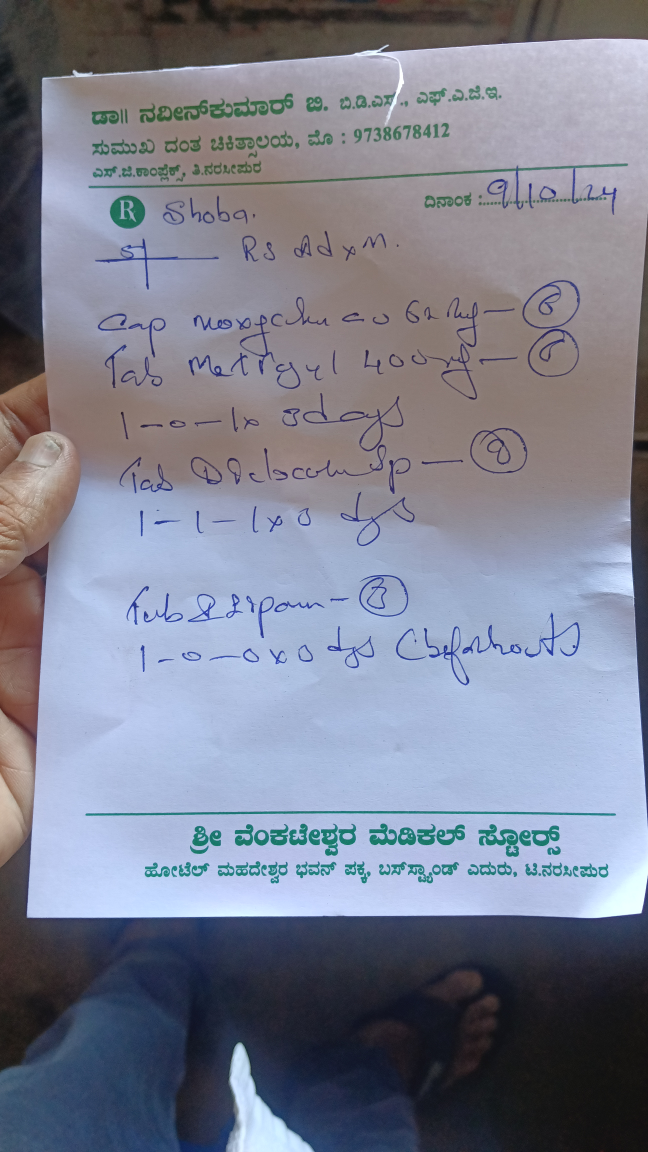 ಡಾ|| ನವೀನ್‌ಕುಮಾರ್ ಬಿ. ಬಿ.ಡಿ.ಎಸ್., ಎಫ್.ಎ.ಜಿ.ಇ.
ಸುಮುಖ ದಂತ ಚಿಕಿತ್ಸಾಲಯ, ಮೊ : 9738678412
ಎಸ್.ಜಿ.ಕಾಂಪ್ಲೆಕ್ಸ್, ತಿ.ನರಸೀಪುರ
ದಿನಾಂಕ : 9/10/24
R Shoba.
5 Rs Adxm.
Cap 625mg — 6
Tab Metrogyl 400mg — 6
1-0-1x 3days
Tab SP — 9
1-1-1x3 dys
Tab — 3
1-0-0x3 dys
ಶ್ರೀ ವೆಂಕಟೇಶ್ವರ ಮೆಡಿಕಲ್ ಸ್ಟೋರ್ಸ್
ಹೋಟೆಲ್ ಮಹದೇಶ್ವರ ಭವನ್ ಪಕ್ಕ, ಬಸ್‌ಸ್ಟ್ಯಾಂಡ್ ಎದುರು, ಟಿ.ನರಸೀಪುರ